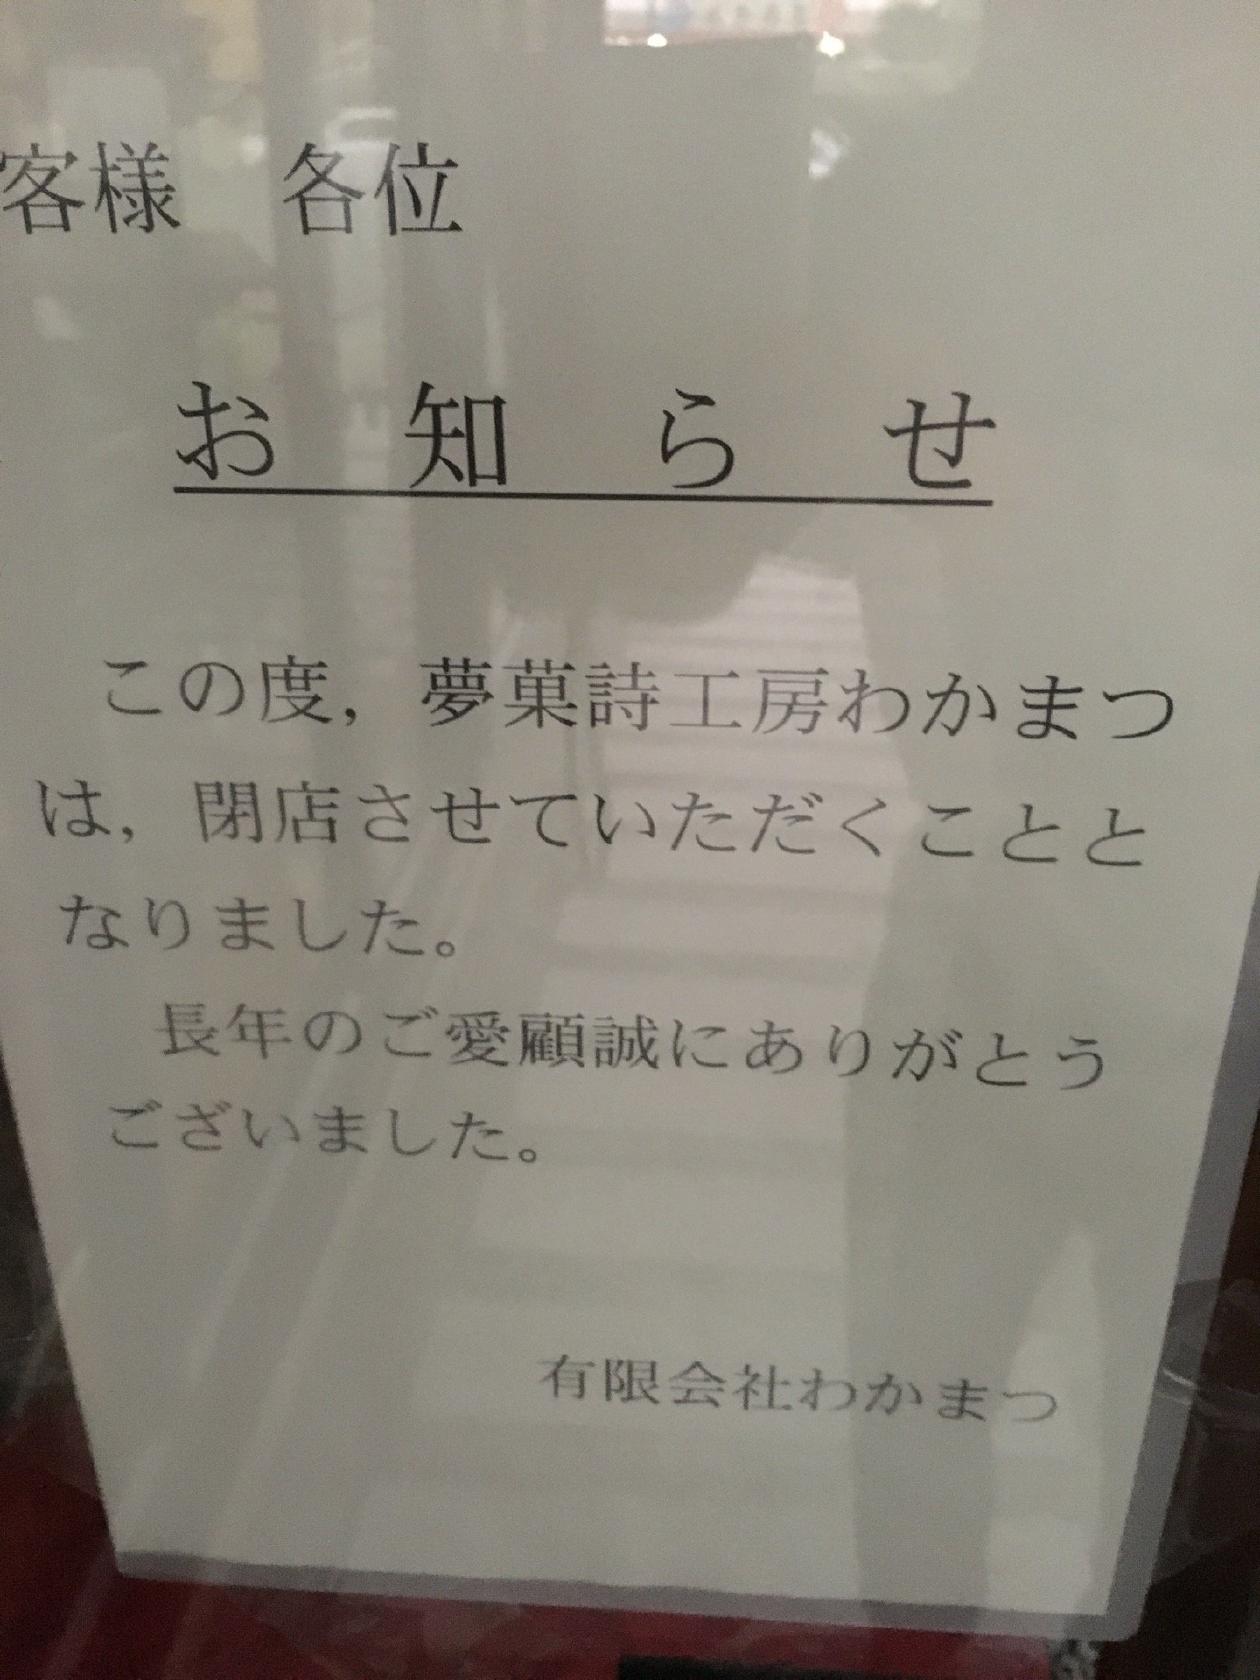 客様　各位
お知らせ
この度，夢菓詩工房わかまつ
は，閉店させていただくことと
なりました。
長年のご愛顧誠にありがとう
ございました。
有限会社わかまつ